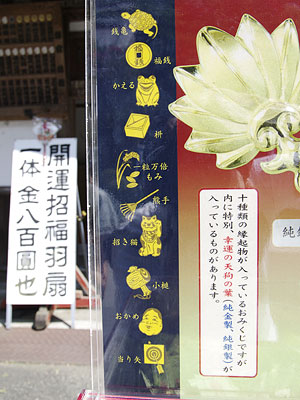 銭亀
福銭
かえる
枡
一粒万倍
もみ
熊手
招き猫
小槌
おかめ
当り矢
十種類の縁起物が入っているおみくじですが
内に特別、幸運の天狗の葉(純金製、純銀製)が
入っているものがあります。
開運招福羽扇
一体 金八百圓也